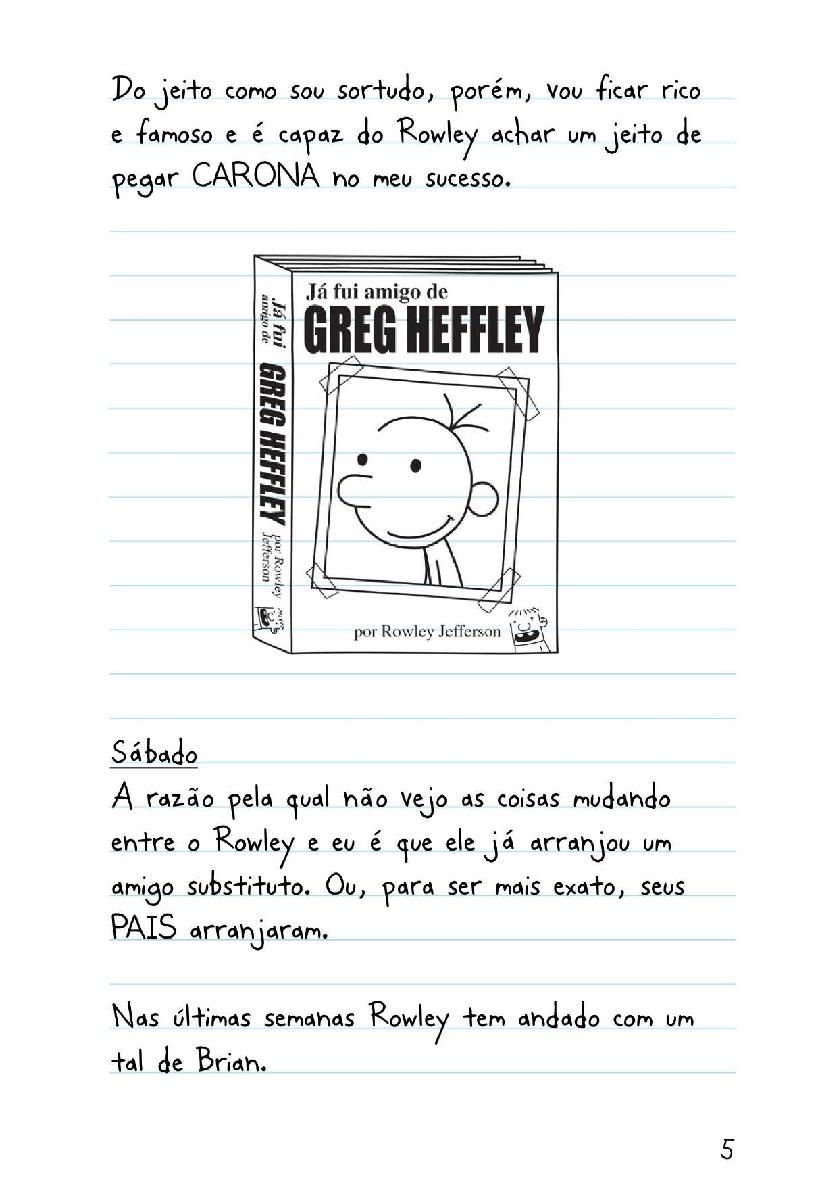 Do jeito como sou sortudo, porém, vou ficar rico
e famoso e é capaz do Rowley achar um jeito de
pegar CARONA no meu sucesso.
Já fui amigo de
GREG HEFFLEY
Já fui
amigo de
GREG HEFFLEY
por Rowley
Jefferson
por Rowley Jefferson
Sábado
A razão pela qual não vejo as coisas mudando
entre o Rowley e eu é que ele já arranjou um
amigo substituto. Ou, para ser mais exato, seus
PAIS arranjaram.
Nas últimas semanas Rowley tem andado com um
tal de Brian.
5